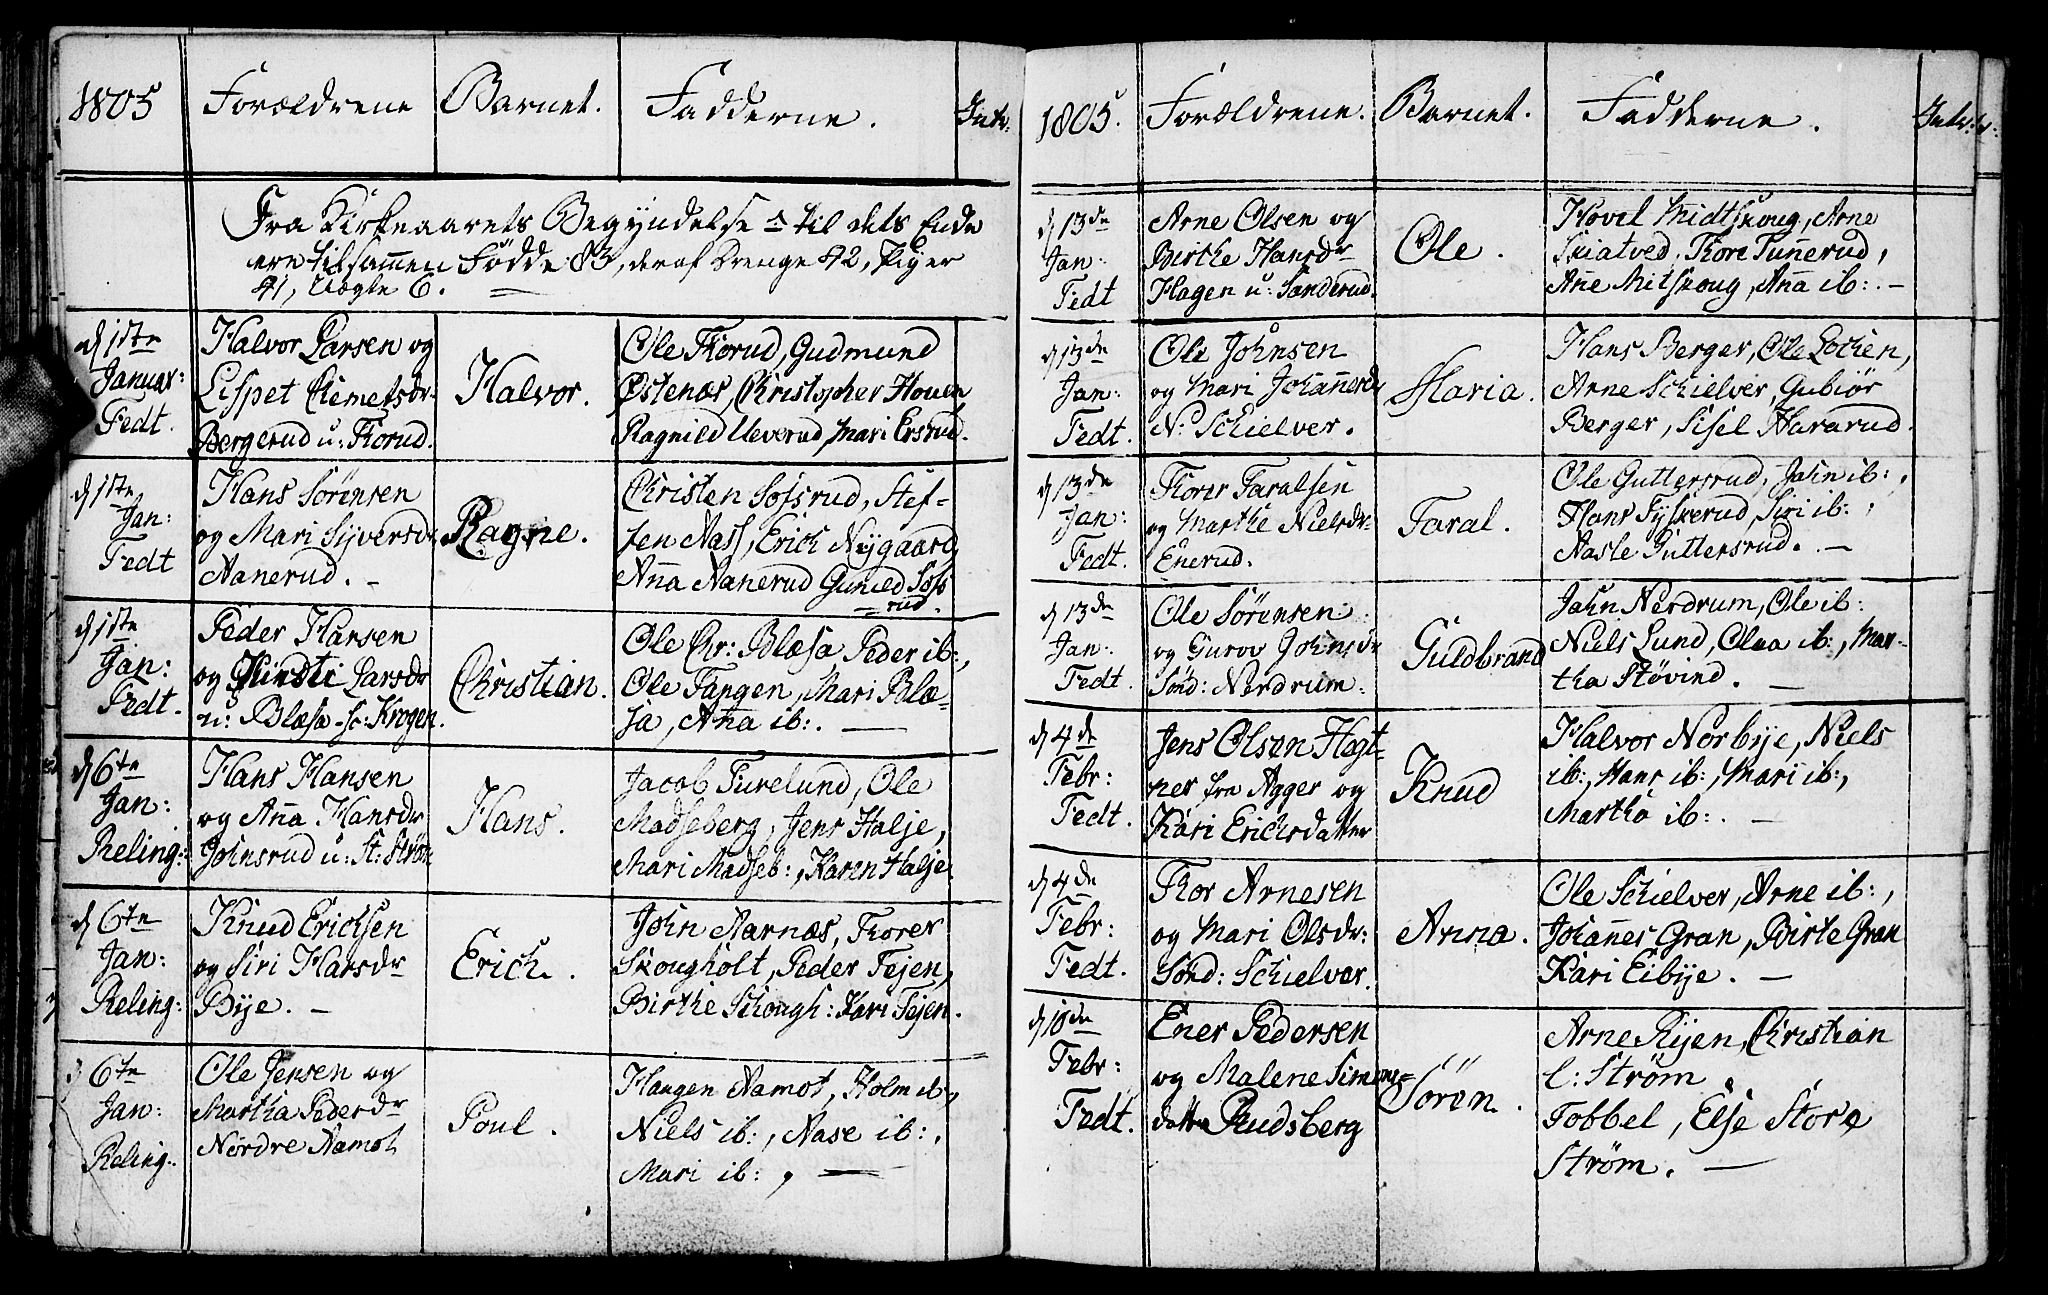 1805 Forældrene Barnet. Fadderne. Intr:
Fra Kirkeaarets Begyndelse til dets Ende
ere tilsammen Födde 83, deraf Drenge 42, Piger
41, Uægte 6.
d 1ste Januar: Fedt.
Halvor Larsen og
Lispet Clemetsdr
Bergerud u: Torud.
Halvor.
Ole Torud, Gudmund
Østenæs, Christopher Houen
Ragnild Ueverud, Mari Ersrud.
d 1ste Jan: Fedt
Hans Sörensen
og Mari Syversdr
Aanerud.
Ragne.
Christen Sofsrud, Stef-
fen Nass, Erich Nygaard,
Anna Aanerud Gunild Sofs
rud.
d 1ste Jan: Fedt.
Peder Hansen
og Larsdr
u: Blæsa Krogen.
Christian.
Ole Chr: Blæsa Peder ib:,
Ole Tangen, Mari Blæ-
sa, Anna ib:.
d 6te Jan: Reling:
Hans Hansen
og Anna Hansdr
Johnsrud u: St: Ström
Hans.
Jacob Furelund, Ole
Madseberg, Jens Halje,
Mari Madseb:, Karen Halje
d 6te Jan: Reling:
Knud Erichsen
og Siri Hansdr
Bye.
Erich.
John Aarnæs, Torer
Skougholt, Peder Tejen,
Birthe Skough: Kari Tejen.
6te Jan: Reling:
Ole Jensen og
Martha Pedersdr
Nordre Aamot
Poul.
Haagen Aamot, Holm ib:,
Niels ib:, Aase ib:,
Mari ib:,
1805. Forældrene. Barnet. Fadderne. Intr:
d 13de Jan: Fedt
Arne Olsen og
Birthe Hansdr
Hagen u: Sanderud.
Ole.
Hovel Midtskoug, Arne
Skiatved, Tore Tunnerud,
Anne Mitskoug, Anna ib:.
d 13de Jan: Fedt.
Ole Johnsen
og Mari Johannesdr
N: Schielver.
Maria.
Hans Berger, Ole Lochen,
Arne Schielver, Gubiör
Berger, Sisel Hararud.
d 13de Jan: Fedt.
Torer Taralsen
og Marthe Nielsdr
Enerud.
Taral.
Ole Guttersrud, John ib:,
Hans Tyskerud, Siri ib:,
Aasle Guttersrud.
d 13de Jan: Fedt.
Ole Sörensen
og Guroe Johnsdr
Sönd: Nordrum.
Guldbrand
John Nordrum, Ole ib:
Niels Lund, Olea ib:, Mar-
tha Stövind.
d 4de Febr: Fedt.
Jens Olsen Hegt-
ner fra Agger og
Kari Erichsdatter
Knud
Halvor Norbye, Niels
ib:, Hans ib:, Mari ib:,
Martha ib:.
d 4de Febr: Fedt.
Tor Arnesen
og Mari Olsdr:
Sönd: Schielver.
Anna.
Ole Schielver, Arne ib:,
Johannes Gran, Birte Gran
Kari Eibye.
d 10de Febr: Fedt.
Ener Pedersen
og Malene Simens-
datter Rudsberg
Sören.
Arne Ryen, Christian
l: Ström
Tobbel, Else Store
Ström.